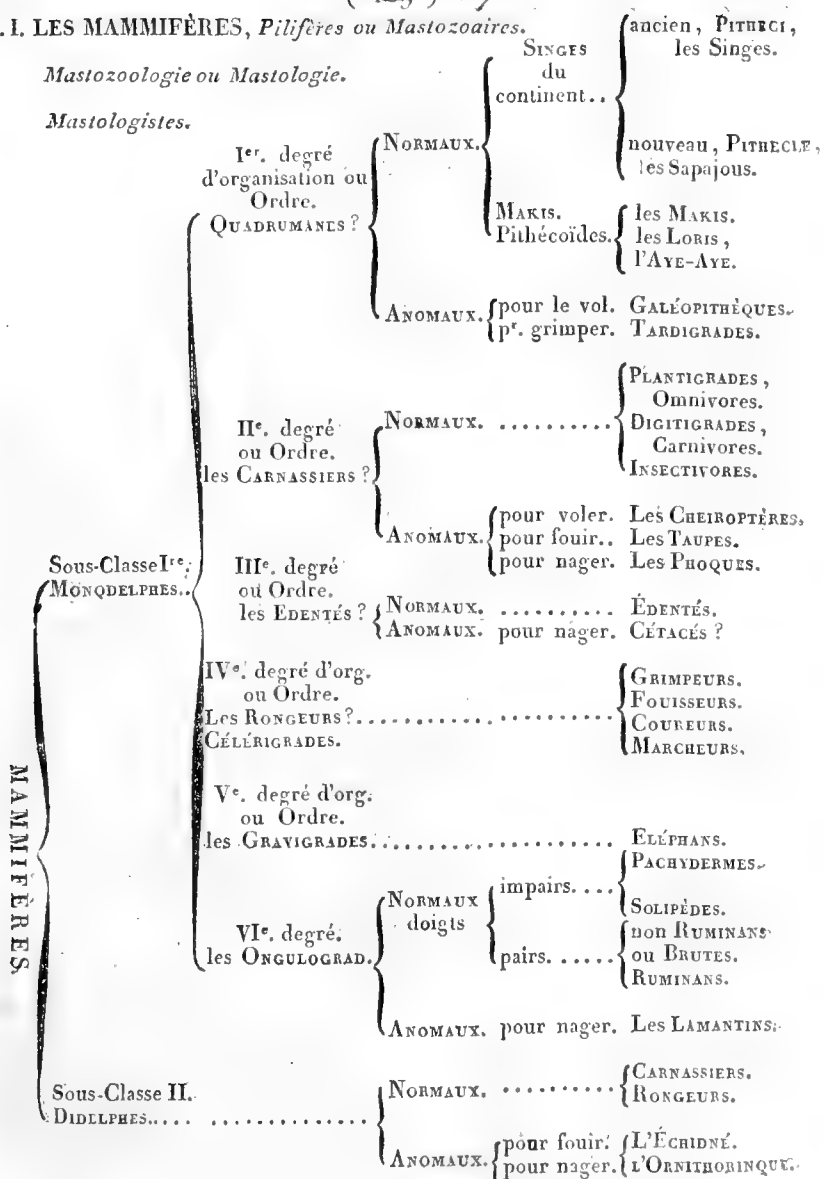 . I. LES MAMMIFÈRES, Pilifères ou Mastozoaires.
Mastozoologie ou Mastologie.
Mastologistes.
MAMMIFÈRES.
Sous-Classe Ire.
MONODELPHES..
Ier. degré
d'organisation ou
Ordre.
QUADRUMANES ?
NORMAUX.
SINGES
du
continent..
ancien, PITHECI,
les Singes.
nouveau, PITHECIÆ,
les Sapajous.
MAKIS.
Pithécoïdes.
les MAKIS.
les LORIS,
l'AYE-AYE.
ANOMAUX.
pour le vol. GALÉOPITHÈQUES.
pr. grimper. TARDIGRADES.
IIe. degré
ou Ordre.
les CARNASSIERS ?
NORMAUX. ..........
PLANTIGRADES,
Omnivores.
DIGITIGRADES,
Carnivores.
INSECTIVORES.
ANOMAUX.
pour voler. Les CHEIROPTÈRES.
pour fouir.. Les TAUPES.
pour nager. Les PHOQUES.
IIIe. degré
ou Ordre.
les EDENTÉS ?
NORMAUX. .......... ÉDENTÉS.
ANOMAUX. pour nager. CÉTACÉS ?
IVe. degré d'org.
ou Ordre.
Les RONGEURS ?......................
CÉLÉRIGRADES.
GRIMPEURS.
FOUISSEURS.
COUREURS.
MARCHEURS.
Ve. degré d'org.
ou Ordre.
les GRAVIGRADES...................... ELÉPHANS.
VIe. degré.
les ONGULOGRAD.
NORMAUX
doigts
impairs....
PACHYDERMES.
SOLIPÈDES.
pairs......
non RUMINANS
ou BRUTES.
RUMINANS.
ANOMAUX. pour nager. Les LAMANTINS.
Sous-Classe II.
DIDELPHES..... .............
NORMAUX. ..........
CARNASSIERS.
RONGEURS.
ANOMAUX.
pour fouir. L'ÉCHIDNÉ.
pour nager. L'ORNITHORINQUE.